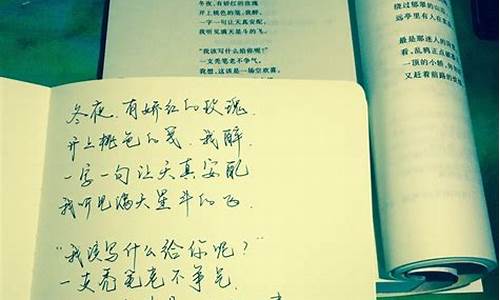 冬夜，有娇红的玫瑰
开上桃色的笺，我醉，
一字一句让天真安配，
我听见满天星斗的飞。
“我该写什么给你呢？”
一支秃笔老不争气。
我想，这该是一场空欢喜。
绕过郁翠的山
远亭里有人在
最是那迷人的
看，乱鸦正点破
一顶的小轿，
又赶着前路的
冬夜，有娇红的玫瑰，
开上桃色的笺，我醉，
一字一句让天真安配
我听见满天星斗的飞.
“我该写什么给你呢？”
一支秃笔老不争气.